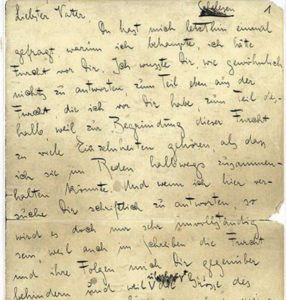 Schelesen
1
Liebster Vater,
Du hast mich letzthin einmal
gefragt warum ich behaupte, ich hätte
Furcht vor Dir. Ich wusste Dir, wie gewöhnlich
nichts zu antworten, zum Teil eben aus der
Furcht die ich vor Dir habe, zum Teil des-
halb weil zur Begründung dieser Furcht
zu viele Einzelnheiten gehören, als dass
ich sie im Reden halbwegs zusammen-
halten könnte. Und wenn ich hier ver-
suche Dir schriftlich zu antworten, so
wird es doch nur sehr unvollständig
sein, weil auch im Schreiben die Furcht
und ihre Folgen mich Dir gegenüber
behindern und weil die Grösse des